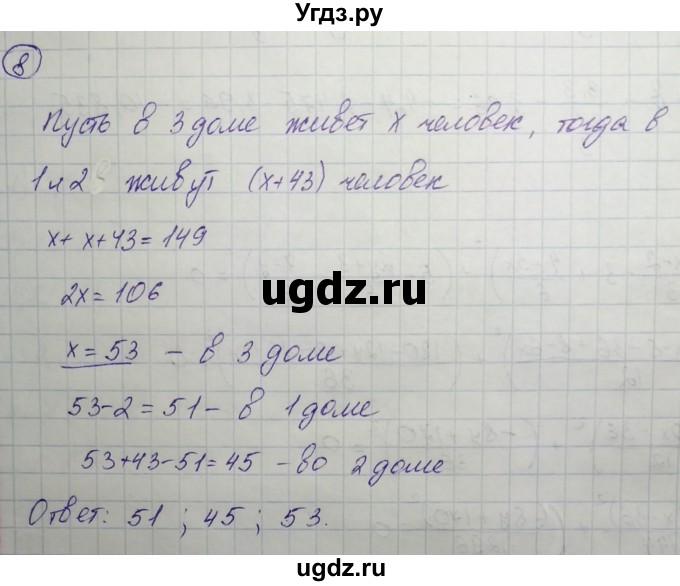 Угдз.ру
8
Пусть в 3 доме живет x человек, тогда в
1 и 2 живут (x+43) человек
x+x+43=149
2x=106
ugdz.ru
x=53 - в 3 доме
53-2=51- в 1 доме
53+43-51=45 - во 2 доме
Ответ: 51; 45; 53.
ugdz.ru